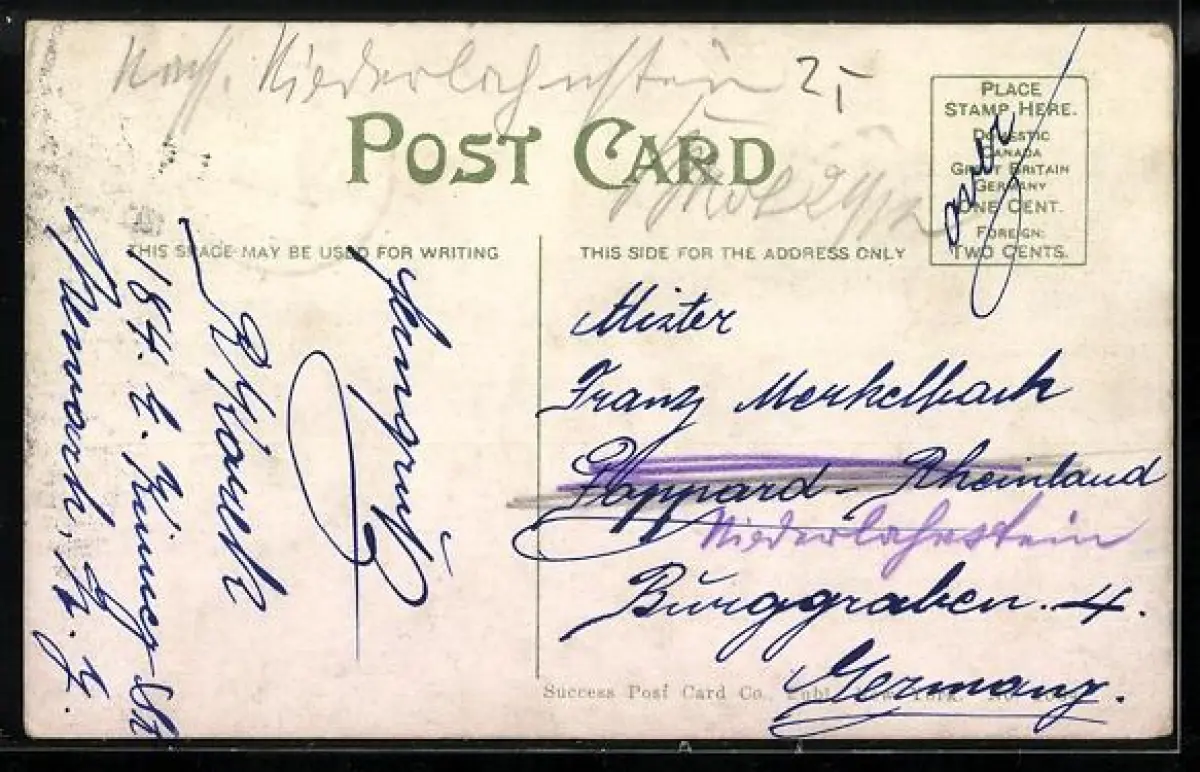 Nach Niederlahnstein 2,-
POST CARD
THIS SPACE MAY BE USED FOR WRITING
THIS SIDE FOR THE ADDRESS ONLY
PLACE
STAMP HERE.
DOMESTIC
CANADA
GREAT BRITAIN
GERMANY
ONE CENT.
FOREIGN:
TWO CENTS.
Mister
Franz Merkelbach
Boppard - Rheinland
Niederlahnstein
Burggraben. 4.
Germany.
184.
Newark, N. J.
Success Post Card Co.